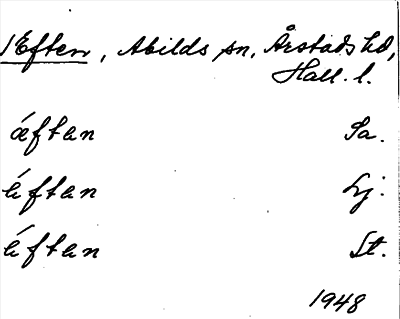 1 Eften, Abilds sn, Årstads hd,
Hall. l.
ǽftan Sa.
ǽftan Lj.
ǽftan St.
1948